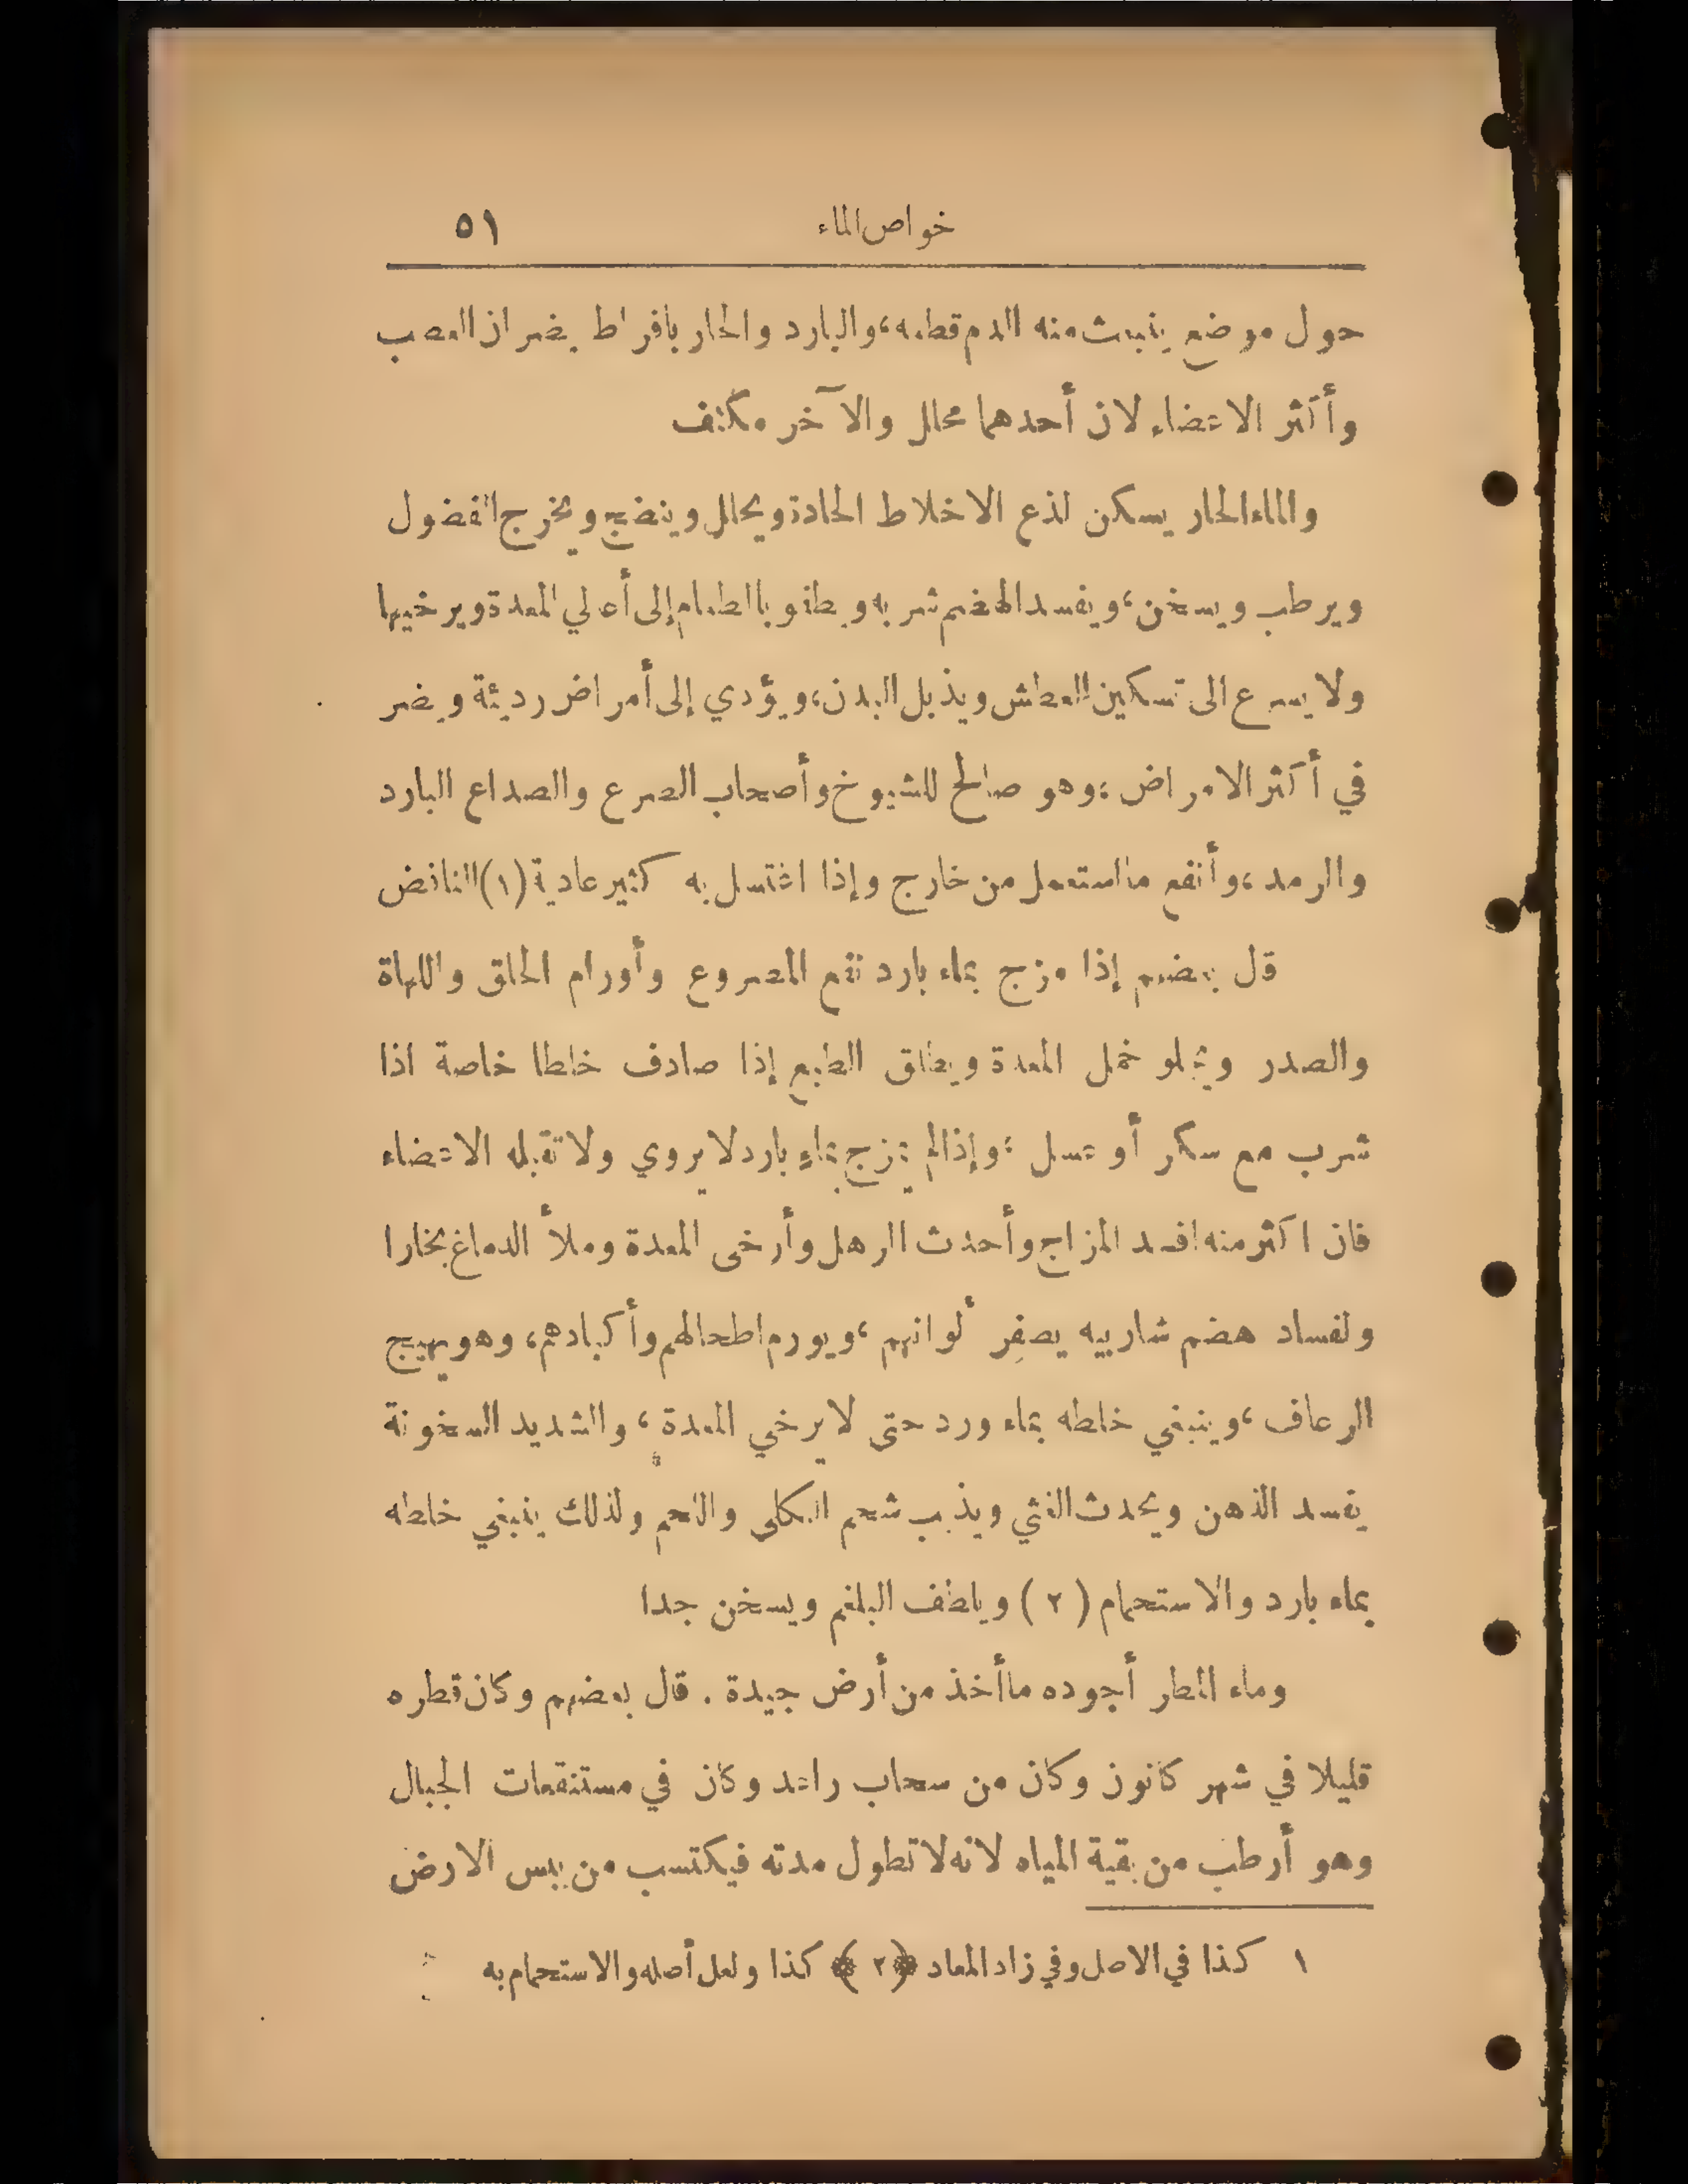 خواص الماء ٥١
حول موضع ينبث منه الدم قطعه، والبارد والحار بافراط يضران العصب
وأكثر الاعضاء لان أحدهما محلل والآخر مكثف
والماء الحار يسكن لذع الاخلاط الحادة ويحلل وينضج ويخرج الفضول
ويرطب ويسخن، ويفسد الهضم شربه ويطفو بالطعام إلى أعلي المعدة ويرخيها
ولا يسرع الى تسكين العطش ويذبل البدن، ويؤدي إلى أمراض رديئة ويضر
في أكثر الامراض، وهو صالح للشيوخ وأصحاب الصرع والصداع البارد
والرمد، وأنفع ما استعمل من خارج وإذا اغتسل به كثير عادية (١) النافض
قال بعضهم إذا مزج بماء بارد نفع المصروع وأورام الحلق واللهاة
والصدر ويجلو خمل المعدة ويطلق الطبع إذا صادف خلطا خاصة اذا
شرب مع سكر أو عسل، وإذا لم يمزج بماء بارد لا يروي ولا تقبله الاعضاء
فان اكثر منه افسد المزاج وأحدث الرهل وأرخى المعدة وملأ الدماغ بخارا
ولفساد هضم شاربيه يصفر ألوانهم، ويورم اطحالهم وأكبادهم، وهو يهيج
الرعاف، وينبغي خلطه بماء ورد حتى لا يرخي المعدة، والشديد السخونة
يفسد الذهن ويحدث الغثي ويذيب شحم الكلى واللحم ولذلك ينبغي خلطه
بماء بارد والاستحمام (٢) ويلطف البلغم ويسخن جدا
وماء المطر أجوده ما أخذ من أرض جيدة. قال بعضهم وكان قطره
قليلا في شهر كانون وكان من سحاب راعد وكان في مستنقعات الجبال
وهو أرطب من بقية المياه لانه لا تطول مدته فيكتسب من يبس الارض
١ كذا في الاصل وفي زاد المعاد ﴿٢﴾ كذا ولعل أصله والاستحمام به